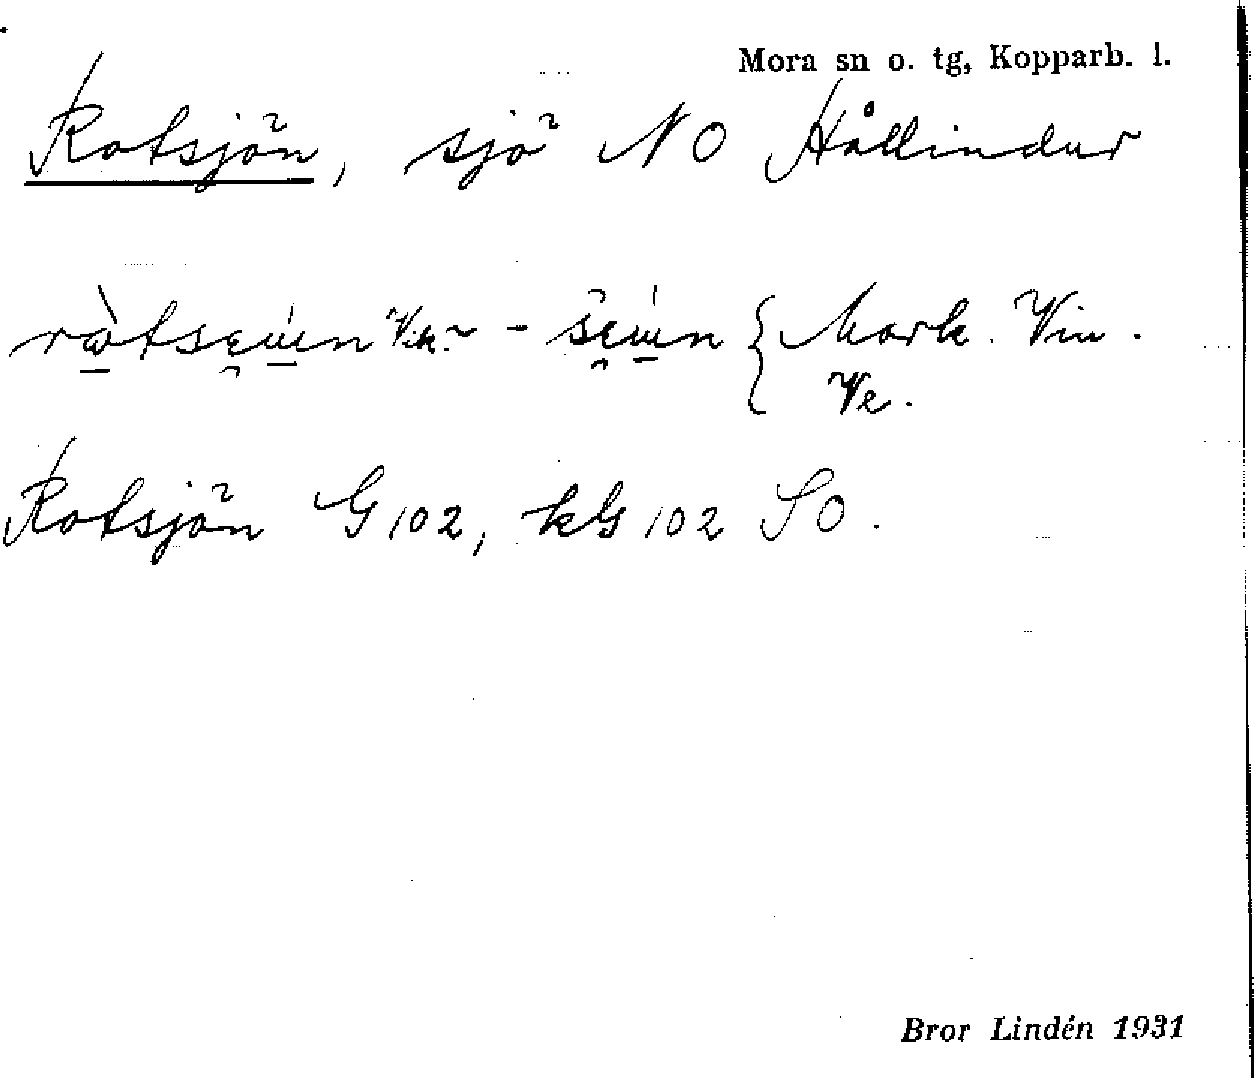 Mora sn o. tg, Kopparb. l.
Rotsjön, sjö NO Hållindur
Vin. Mark. Vin.
Ve.
Rotsjön G 102, kG 102 SO.
Bror Lindén 1931